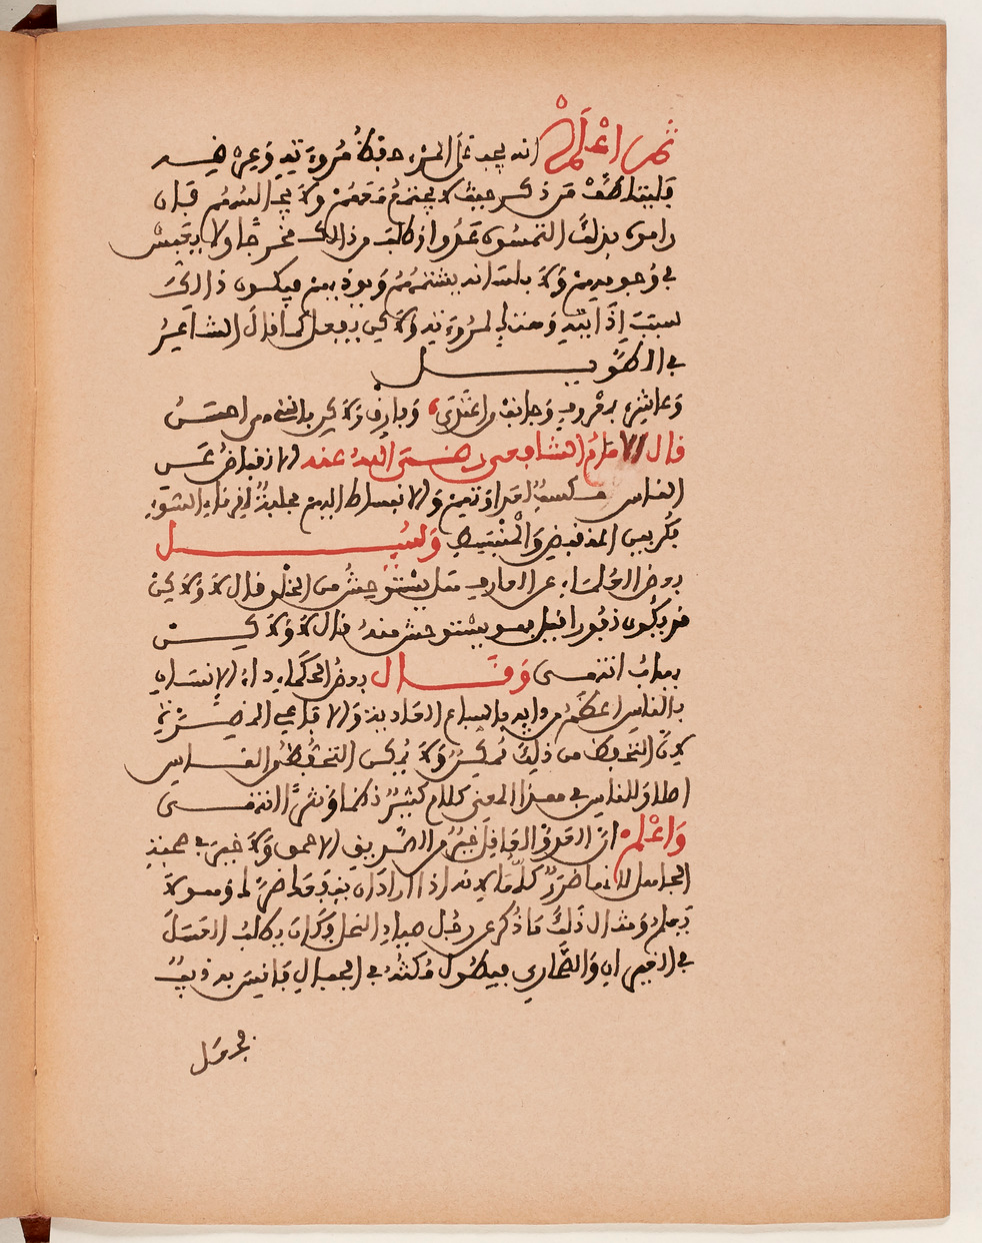 ثم اعلم انه يجب على المرء حفظ مروءته وعرضه
فليتلطف من ذكر حيث لا يجتمع معهم ولا يجالسهم فان
راموه بذلك التمسوه عذرا وطلب من ذالك مخرجا ولا يعبس
في وجوههم ولا بلسانه يشتمهم ويوذيهم فيكون ذالك
سبب إذايته وهتك لمروءته ولاكن يفعل كما قال الشاعر
في الطويل
وعاشر بمعروف وجانب من اعتدى وفارق ولاكن بالتي هي احسن
قال الامام الشافعي رضي الله عنه الانقباض عن
الناس مكسبة لعداوتهم والانبساط اليهم مجلبة لقرناء السوء
بكن بين المنقبض والمنبسط وسيل
بعض الحكماء عن العارف هل يستوحش من الخلق قال لا ولاكن
قد يكون نفورا قيل بهو يستوحش منه قال لا ولاكن
يهاب انتهى وقال بعض الحكماء داء الانسان
بالناس اعظم من دايه بالسباع العادية والافاعي المضرة
لان التحفظ من ذلك ممكن ولا يمكن التحفظ من الناس
اطلا وللناس في هذا المعنى كلام كثير نظما ونثرا انتهى
واعلم ان العدو العاقل خير من الصديق الاحمق ولا خير في صحبة
الجاهل لانها ضرر كلها لانه اذا اراد ان ينفع قد اضر له وهو لا
يعلم ومثال ذلك ما ذكر عن رجل صياد النحل وكان يطلب العسل
في الغيران والصحاري فيطول مكثه في الجبال فانيس به ذيب
فجعل